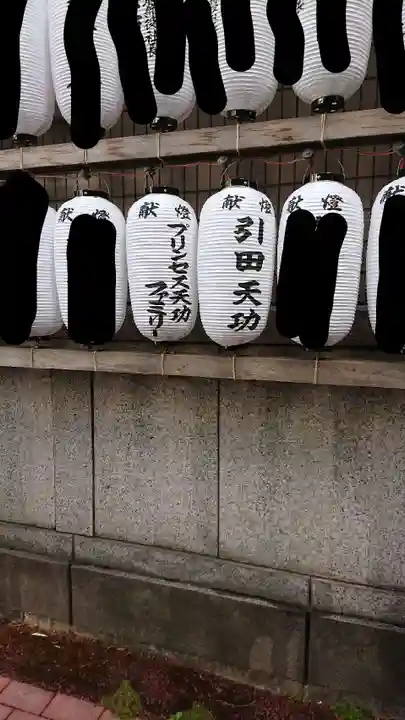 献燈
献燈
プリンセス天功
ファミリー
献燈
引田天功
献燈